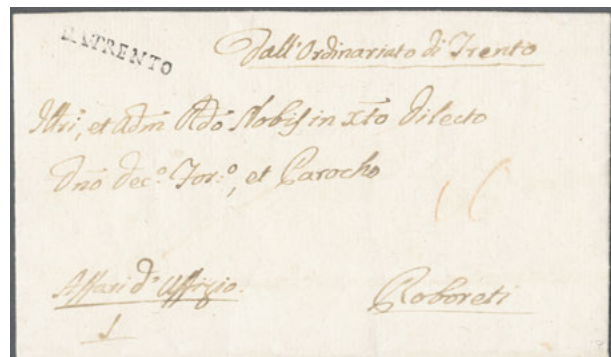 DA TRENTO
Dall'Ordinariato di Trento
Illri, et Adm Rdo Nobis in xto Dilecto
Dno Dec.o For.o, et Parocho
Affari d'Uffizio.
1
Roboreti